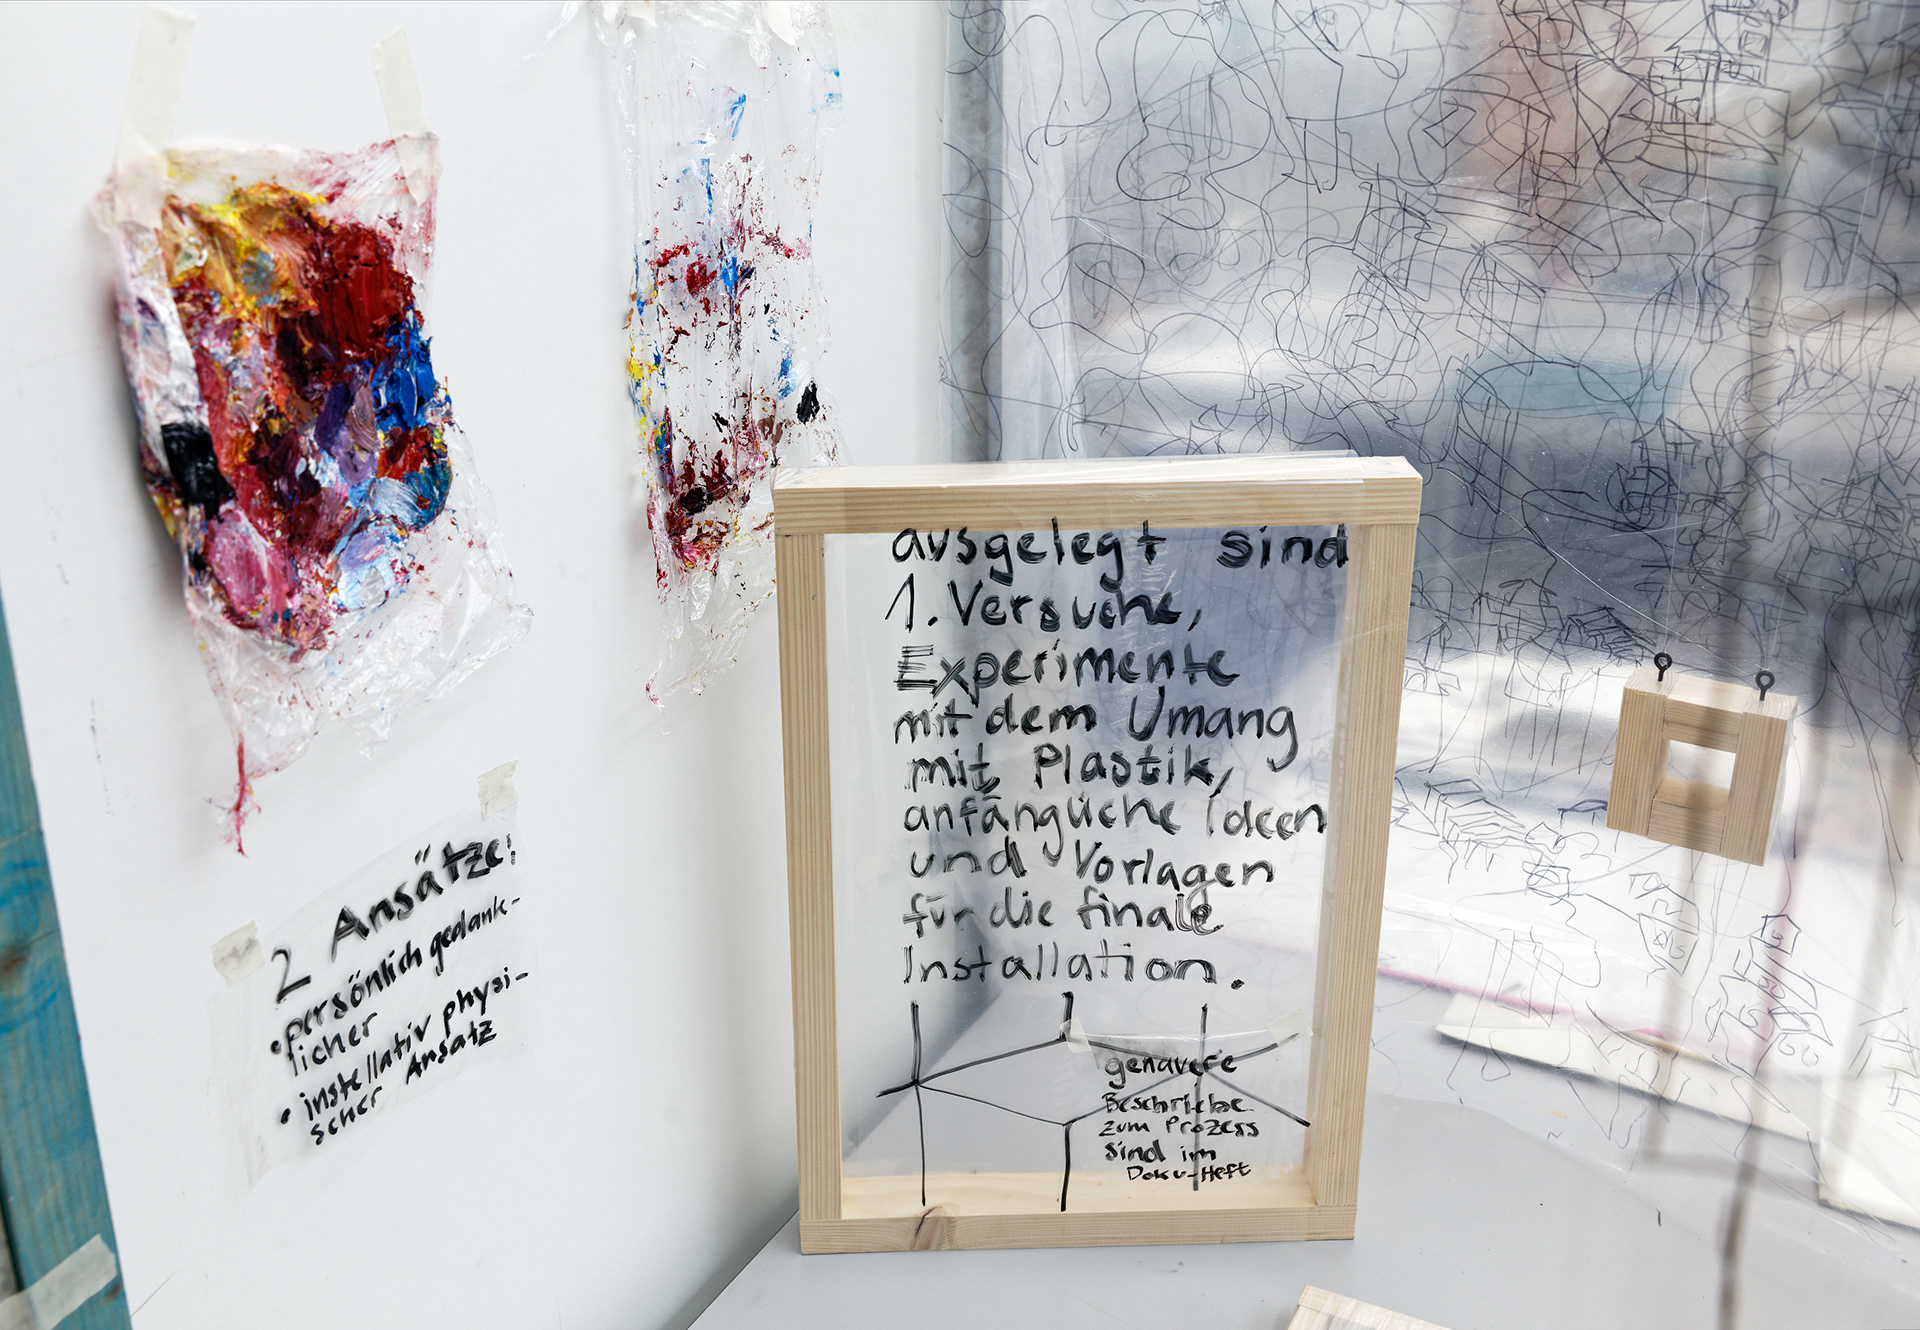 2 Ansätze:
• persönlich gedank-
licher
• instellativ physi-
scher Ansatz
ausgelegt sind
1. Versuche,
Experimente
mit dem Umang
mit Plastik,
anfängliche Ideen
und Vorlagen
für die finale
Installation.
genauere
Beschriebe
zum Prozess
sind im
Doku-Heft